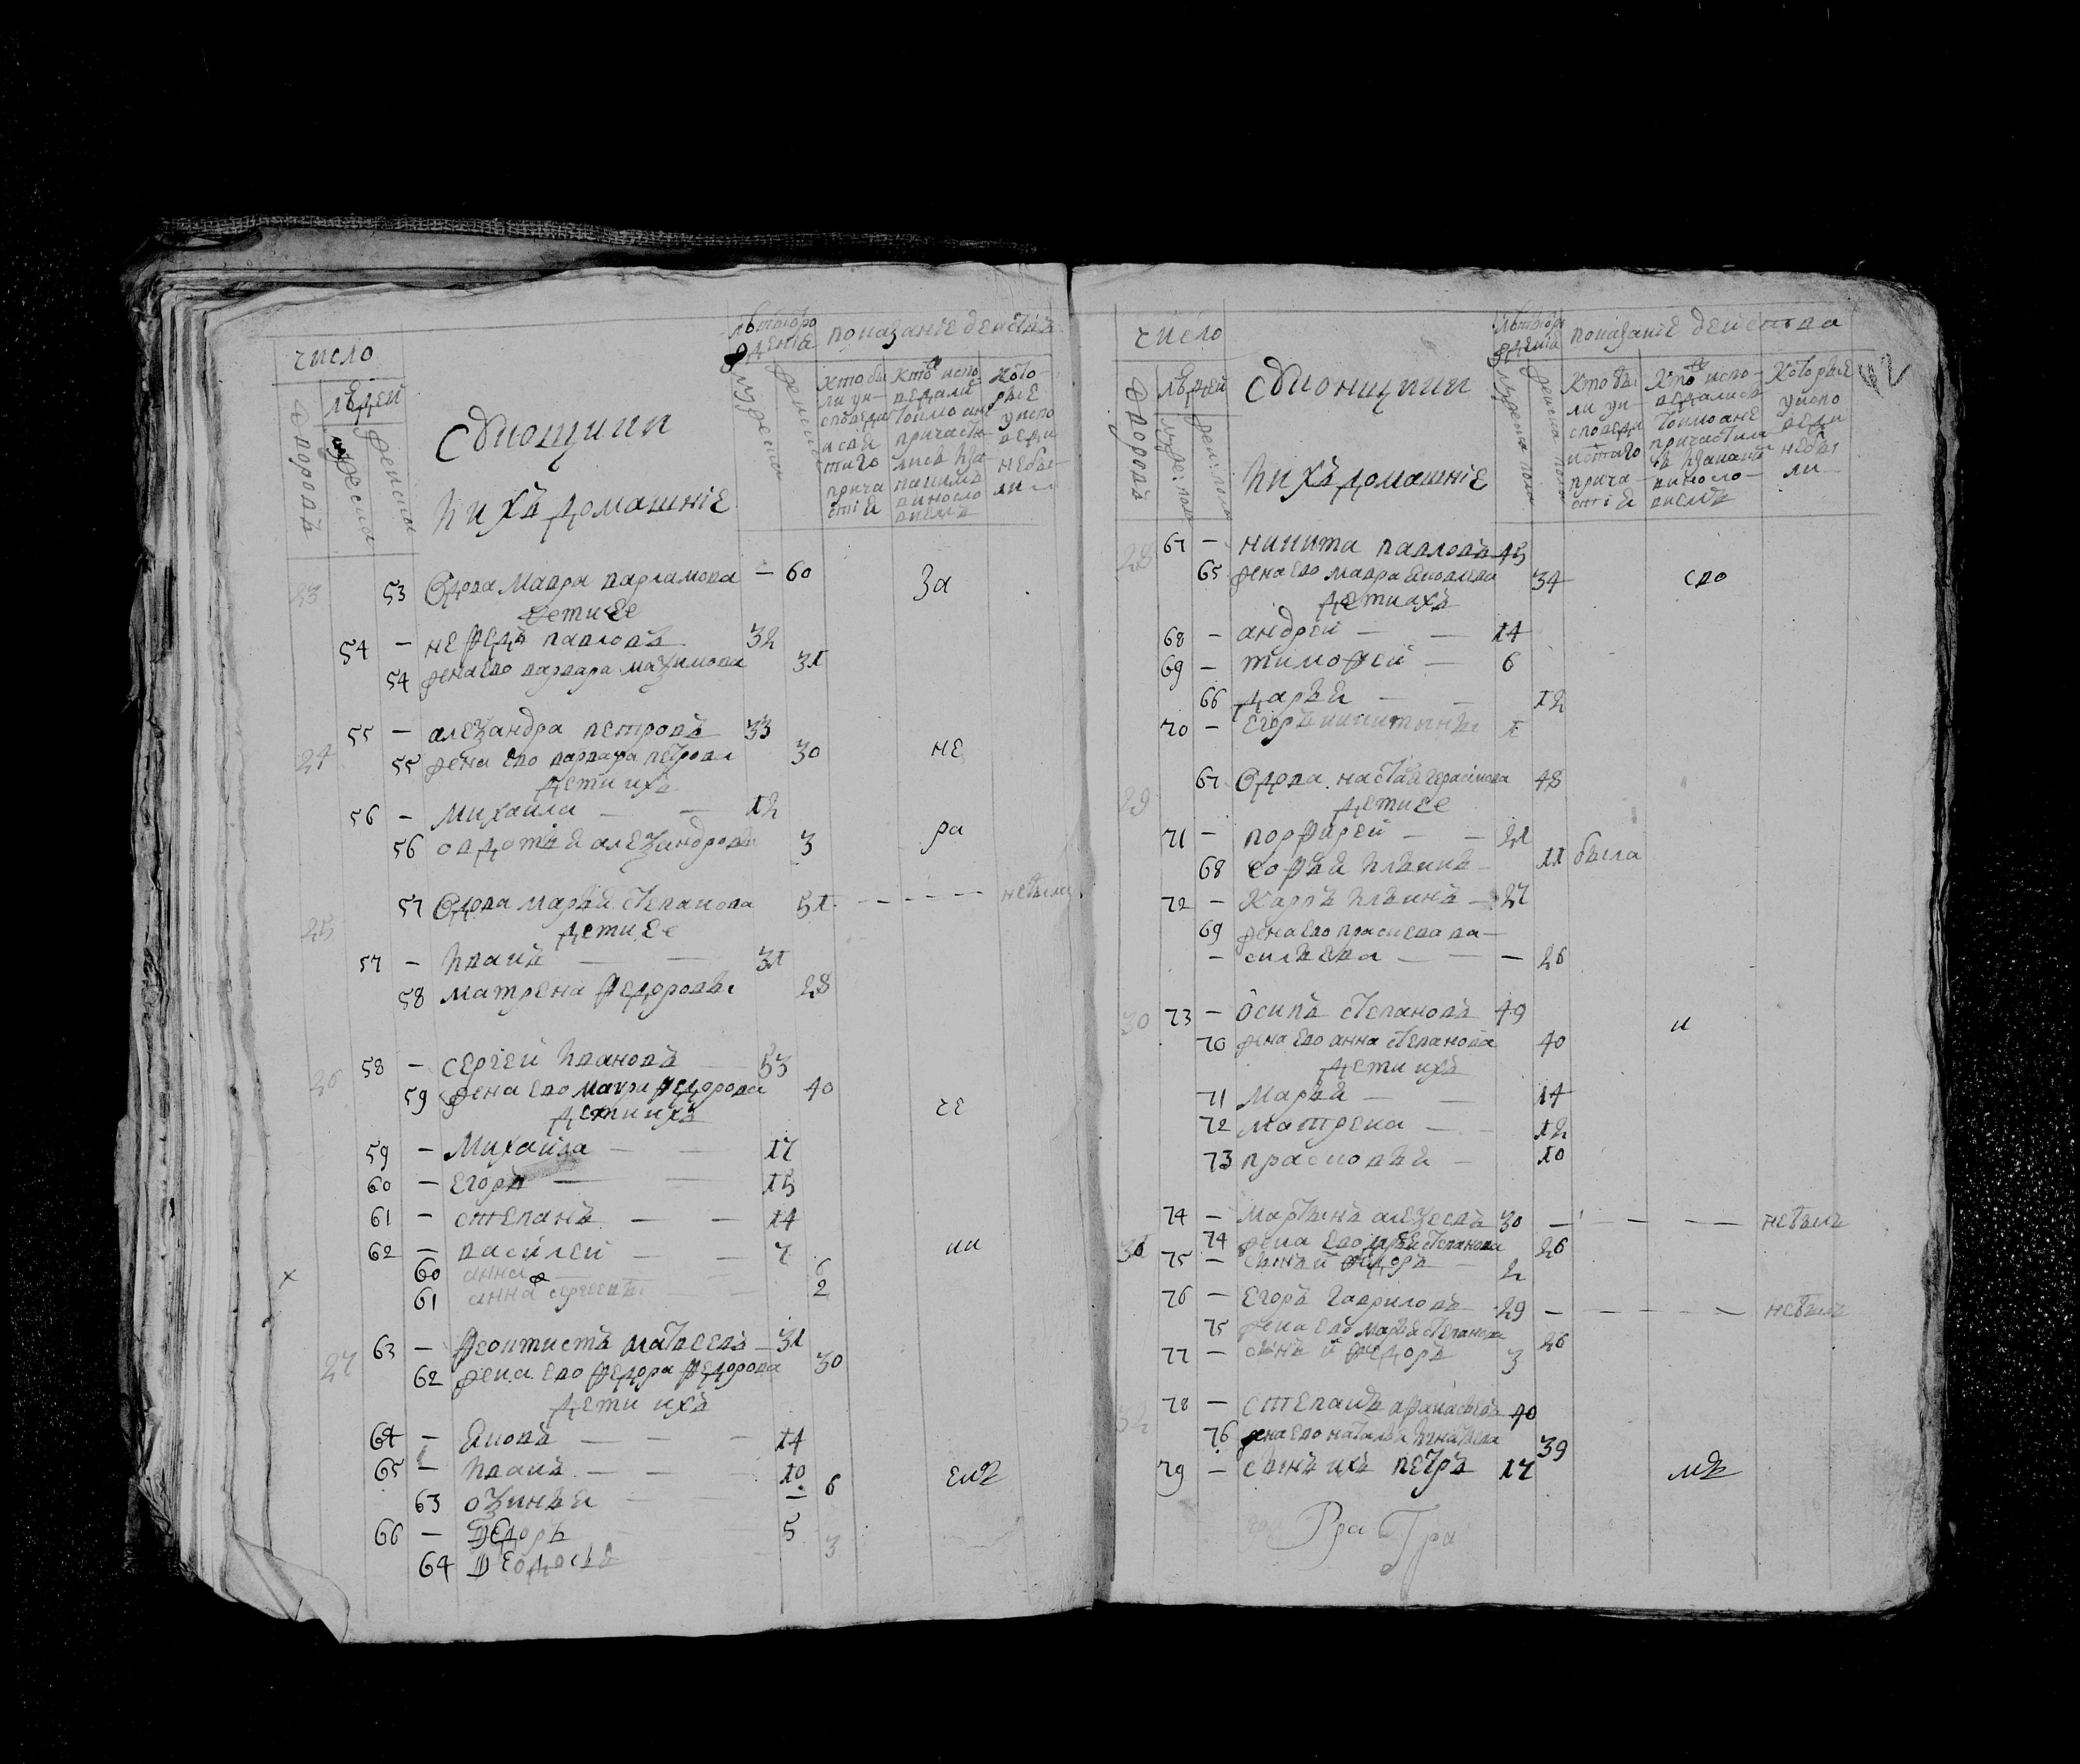 число
людей
дворовъ
мужеска
женска
Свионщики
и ихъ домашніе
лѣтъ отро
жденія
мужеска
женска
показаніе действа
кто бы
ли уи-
споведи
и свя
таго
прича
стія
кто испо
ведали
тоимо а не
причасти
лись и за
какимъ
виносло
виемъ
кото-
рые
уиспо
веди
небы-
ли
23 53 вдова мавра варламова — 60 за
дети ее
54 — нефедъ павловъ 32
54 жена ево варвара мазимова 31
24 55 — алезандра петровъ 33
55 жена ево варвара петрова 30 не
дети ихъ
56 — михаила — — 12
56 овдотья алезандровы 3 ра
25 57 вдова марья степанова 51 — — — — небыли
дети ее
57 — иванъ — — 31
58 матрена федоровы 28
26 58 — сергей ивановъ — 53
59 жена ево мавра федорова 40 че
дети ихъ
59 — михайла — — 17
60 — егоръ — — 15
61 — степанъ — — 14
62 — василей — — 7 ни
60 анна 6
61 анна сергеевы 2
27 63 — феоктистъ матвеевъ — 31
62 жена ево федора федорова 30
дети ихъ
64 — яковъ — — — 14
65 — иванъ — — 10
63 озинья — — 6 емъ
66 — федоръ 5
64 федосья 3
число
людей
дворовъ
муже: пола
жен: пола
свионщики
и ихъ домашніе
лѣтъ отро
жденія
мужеска пола
женска пола
показаніе действа
кто бы
ли уи-
споведи
и стаго
прича-
стія
кто испо-
ведались
тоимо а не
причастили
съ и закаки
виносло-
виемъ
которые
уиспо
веди
небы
ли
42
28 67 — никита павловъ 45
65 жена ево мавра яковлева 34 сво
дети ихъ
68 — андрей — — 14
69 — тимофей — 6
66 дарья — — 12
70 — егоръ никитины 1
29 67 вдова настася герасимова 48
дети ее
71 — порфирей — — 21
68 софья ильины — 11 была
72 — карпъ ильинъ — 27
69 жена ево прасковья ва-
— сильева — — — 26
30 73 — осипъ степановъ 49 и
70 жена ево анна степанова 40
дети ихъ
71 марья — — 14
72 матрена — — 12
73 прасковья — 10
74 — мартынъ алезеевъ 30 — — — — небылъ
31 74 жена ево марья степанова 26
75 — сынъ й федоръ — 2
76 — егоръ гавриловъ 29 — — — — — небылъ
75 жена ево марья степанова 26
77 — сынъ й федоръ 3
32 78 — степанъ афанасьевъ 40
76 жена ево наталья игнатьева 39
79 — сынъ ихъ петръ 17 мъ
Рра Гра